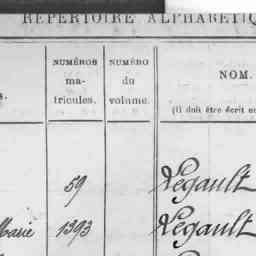 RÉPERTOIRE ALPHABÉTIQ
NUMÉROS
ma-
tricules.
NUMÉRO
du
volume.
NOM.
(il doit être écrit e
s.
59
Legault
Marie
1393
Legault